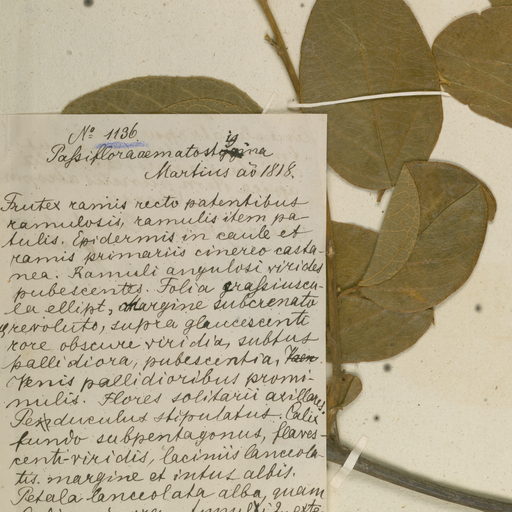 No 1136.
Passiflora aematostigma
Martius ao 1818.
Frutex ramis recto patentibus
ramulosis, ramulis item pa-
tulis. Epidermis in caule et
ramis primariis cinereo casta-
nea. Ramuli angulosi virides
pubescentes. Folia crassiuscu-
la ellipt, margine subcrenato
revoluto, supra glaucescenti
rore obscure viridia, subtus
pallidiora, pubescentia,
Venis pallidioribus promi-
nulis. Flores solitarii axillares.
Pedunculus stipulatus. Calix
fundo subpentagonus, flaves-
centi-viridis, laciniis lanceola-
tis. margine et intus albis.
Petala lanceolata alba, quam